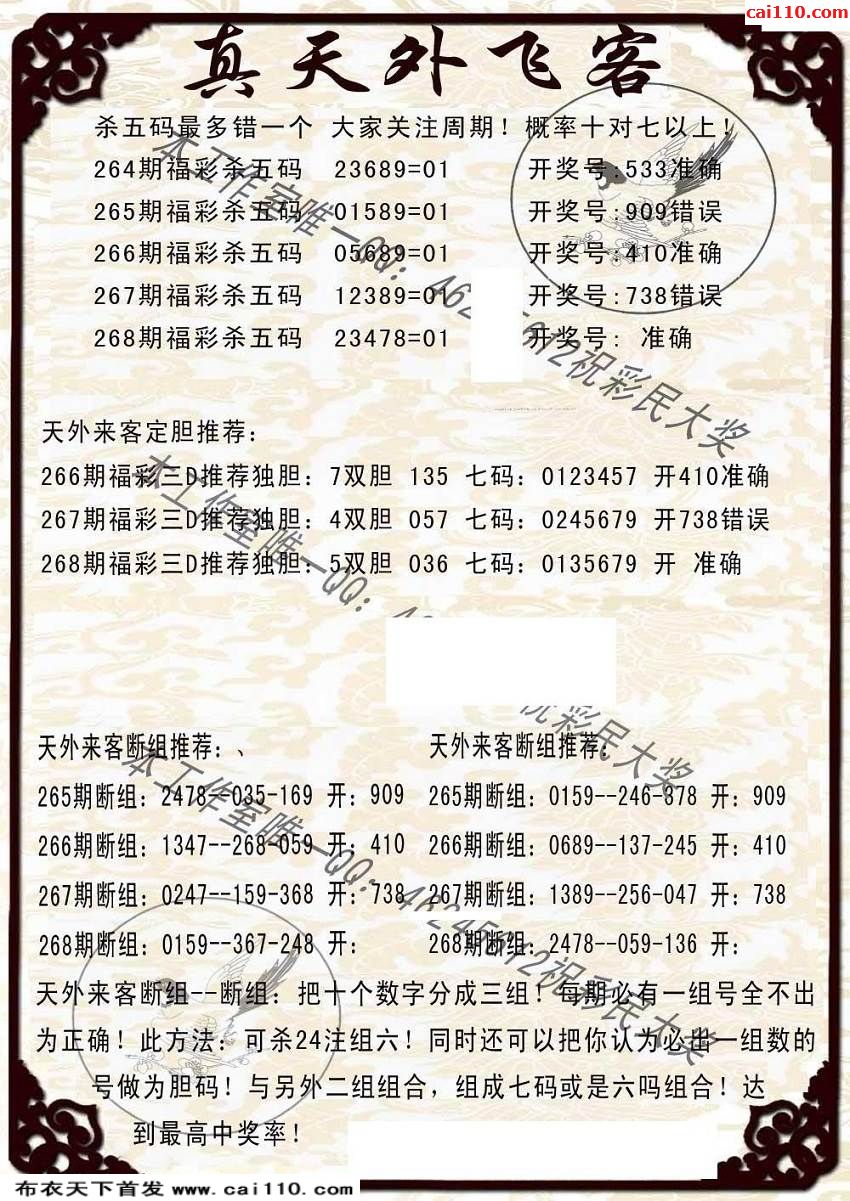 cai110.com
真天外飞客
杀五码最多错一个 大家关注周期！概率十对七以上！
264期福彩杀五码 23689=01 开奖号:533准确
265期福彩杀五码 01589=01 开奖号:909错误
266期福彩杀五码 05689=01 开奖号:410准确
267期福彩杀五码 12389=01 开奖号:738错误
268期福彩杀五码 23478=01 开奖号: 准确
天外来客定胆推荐：
266期福彩三D推荐独胆：7双胆 135 七码：0123457 开410准确
267期福彩三D推荐独胆：4双胆 057 七码：0245679 开738错误
268期福彩三D推荐独胆：5双胆 036 七码：0135679 开 准确
天外来客断组推荐：、 天外来客断组推荐：
265期断组：2478--035-169 开：909 265期断组：0159--246-378 开：909
266期断组：1347--268-059 开：410 266期断组：0689--137-245 开：410
267期断组：0247--159-368 开：738 267期断组：1389--256-047 开：738
268期断组：0159--367-248 开： 268期断组：2478--059-136 开：
天外来客断组--断组：把十个数字分成三组！每期必有一组号全不出
为正确！此方法：可杀24注组六！同时还可以把你认为必出一组数的
号做为胆码！与另外二组组合，组成七码或是六吗组合！达
到最高中奖率！
本工作室唯一QQ：462 612祝彩民大奖
本工作室唯一QQ：46 祝彩民大奖
本工作室唯一QQ：46245612祝彩民大奖
布衣天下首发 www.cai110.com